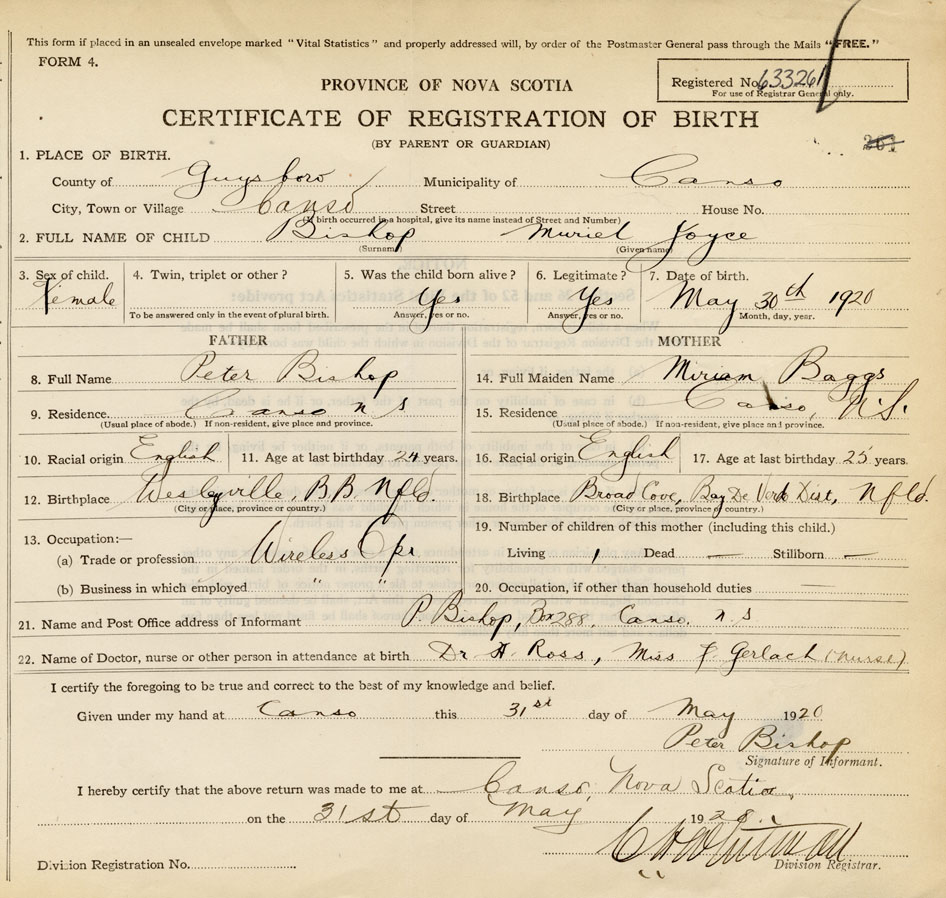 This form if placed in an unsealed envelope marked "Vital Statistics" and properly addressed will, by order of the Postmaster General pass through the Mails "FREE."
FORM 4.
Registered No. 633261
For use of Registrar General only.
PROVINCE OF NOVA SCOTIA
CERTIFICATE OF REGISTRATION OF BIRTH
(BY PARENT OR GUARDIAN)
261
1. PLACE OF BIRTH.
County of Guysboro Municipality of Canso
City, Town or Village Canso Street House No.
(If birth occurred in a hospital, give its name instead of Street and Number)
2. FULL NAME OF CHILD Bishop Muriel Joyce
(Surname) (Given name)
3. Sex of child. 4. Twin, triplet or other? 5. Was the child born alive? 6. Legitimate? 7. Date of birth.
Female Yes Yes May 30th 1920
To be answered only in the event of plural birth. Answer, yes or no. Answer, yes or no. Month, day, year.
FATHER MOTHER
8. Full Name Peter Bishop 14. Full Maiden Name Miriam Baggs
9. Residence Canso N S 15. Residence Canso, N.S.
(Usual place of abode.) If non-resident, give place and province. (Usual place of abode.) If non-resident, give place and province.
10. Racial origin English 11. Age at last birthday 24 years. 16. Racial origin English 17. Age at last birthday 25 years.
12. Birthplace Wesleyville, B.B. Nfld. 18. Birthplace Broad Cove, Bay De Verde Dist, Nfld.
(City or place, province or country.) (City or place, province or country.)
13. Occupation:— 19. Number of children of this mother (including this child.)
(a) Trade or profession Wireless Opr Living 1 Dead — Stillborn —
(b) Business in which employed " " 20. Occupation, if other than household duties —
21. Name and Post Office address of Informant P. Bishop, Box 288, Canso. N.S
22. Name of Doctor, nurse or other person in attendance at birth Dr H. Ross, Miss F Gerlach (nurse)
I certify the foregoing to be true and correct to the best of my knowledge and belief.
Given under my hand at Canso this 31st day of May 1920
Peter Bishop
Signature of Informant.
I hereby certify that the above return was made to me at Canso, Nova Scotia,
on the 31st day of May 192
Division Registration No. Division Registrar.